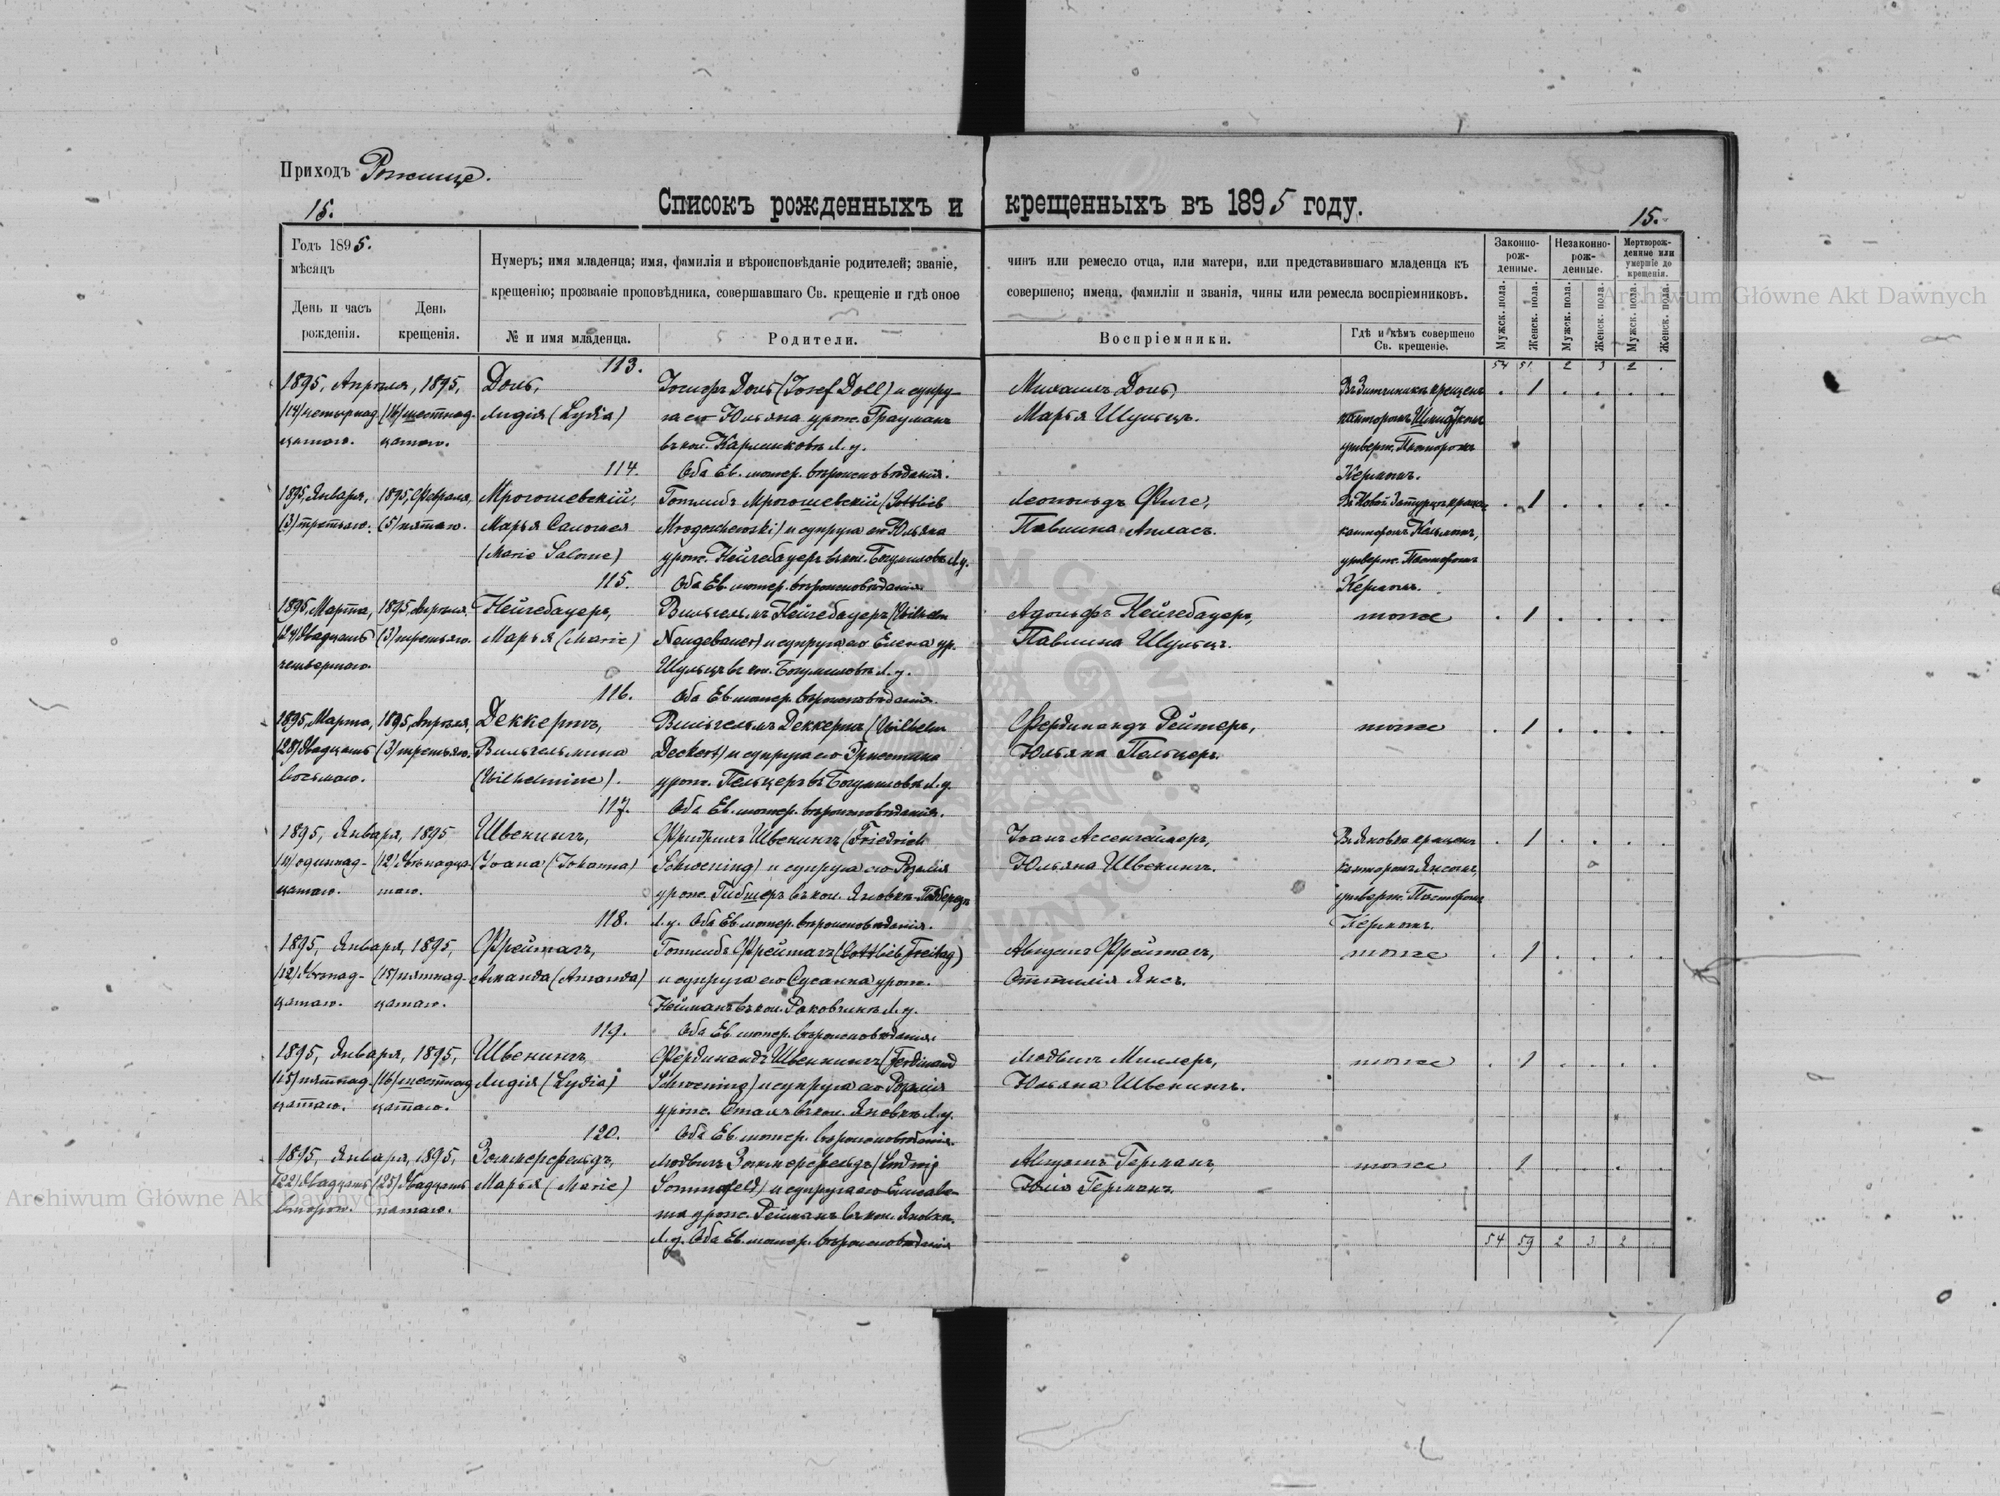 Приходъ Рожище.
15.
Списокъ рожденныхъ и крещенныхъ въ 1895 году.
15.
Годъ 1895.
мѣсяцъ
День и часъ рожденія.
День крещенія.
Нумеръ; имя младенца; имя, фамилія и вѣроисповѣданіе родителей; званіе, чинъ или ремесло отца, или матери, или представившаго младенца къ
крещенію; прозваніе проповѣдника, совершавшаго Св. крещеніе и гдѣ оное совершено; имена, фамиліи и званія, чины или ремесла воспріемниковъ.
№ и имя младенца.
Родители.
Воспріемники.
Гдѣ и кѣмъ совершено Св. крещеніе.
Законно-рож-денные.
Незаконно-рож-денные.
Мертворож-денные или умершіе до крещенія.
Мужск. пола.
Женск. пола.
Мужск. пола.
Женск. пола.
Мужск. пола.
Женск. пола.
54 51 2 3 2 .
113.
1895, Апрѣля, 1895,
(14) четырнад-
цатаго.
(16) шестнад-
цатаго.
Доль,
Лидія (Lydia)
Іосифъ Доль (Josef Doll) и супру-
га его Юльяна урож. Грауманъ
въ кол. Л. у.
Оба Ев. лютер. вѣроисповѣданія.
Михаилъ Доль,
Марья Шульцъ.
крещенъ
канторомъ
утверж. Пасторомъ
Керломъ.
. 1 . . . .
114.
1895, Января,
(3) третьяго.
1895, Февраля,
(5) пятаго.
Мрогошевскій,
Марья Саломея
(Marie Salome)
Готлибъ Мрогошевскій (Gottlieb
Mrogoschewski) и супруга его Юльяна
урож. Нейгебауеръ въ кол. Богумиловъ Л. у.
Оба Ев. лютер. вѣроисповѣданія.
Леопольдъ Фиге,
Павлина Атласъ.
канторомъ
утверж. Пасторомъ
Керломъ.
. 1 . . . .
115.
1895, Марта,
(24) двадцать
четвертаго.
1895, Апрѣля,
(3) третьяго.
Нейгебауеръ,
Марья (Marie)
Вильгельмъ Нейгебауеръ (Wilhelm
Neugebauer) и супруга его Елена ур.
Шульцъ въ кол. Богумиловъ Л. у.
Оба Ев. лютер. вѣроисповѣданія.
Адольфъ Нейгебауеръ,
Павлина Шульцъ.
тоже
. 1 . . . .
116.
1895, Марта,
(28) двадцать
восьмаго.
1895, Апрѣля,
(3) третьяго.
Деккертъ,
Вильгельмина
(Wilhelmine).
Вильгельмъ Деккертъ (Wilhelm
Deckert) и супруга его Эрнестина
урож. Пельцеръ въ Богумиловъ Л. у.
Оба Ев. лютер. вѣроисповѣданія.
Фердинандъ Рейтеръ,
Юльяна Пельцеръ.
тоже
. 1 . . . .
117.
1895, Января, 1895
(11) одиннад-
цатаго.
(12) двѣнадца-
таго.
Швенингъ,
Іоана (Johanna)
Фридрихъ Швенингъ (Friedrich
Schwening) и супруга его Розалія
урож. въ кол. Яновка
Л. у. Оба Ев. лютер. вѣроисповѣданія.
Іоанъ
Юльяна Швенингъ.
Въ Яновкѣ крещенъ
канторомъ Янсонъ,
утверж. Пасторомъ
Керломъ.
. 1 . . . .
118.
1895, Января, 1895,
(12) двѣнад-
цатаго.
(15) пятнад-
цатаго.
Фрейтагъ,
Аманда (Amanda)
Готлибъ Фрейтагъ (Gottlieb Freitag)
и супруга его Сусанна урож.
Нейманъ въ кол. Л. у.
Оба Ев. лютер. вѣроисповѣданія.
Августъ Фрейтагъ,
Оттилія Янсъ.
тоже
. 1 . . . .
119.
1895, Января, 1895,
(15) пятнад-
цатаго.
(16) шестнад-
цатаго.
Швенингъ
Лидія (Lydia)
Фердинандъ Швенингъ (Ferdinand
Schwening) и супруга его Розалія
урож. Сталь въ кол. Яновка Л. у.
Оба Ев. лютер. вѣроисповѣданія.
Людвигъ Миллеръ,
Юльяна Швенингъ.
тоже
. 1 . . . .
120.
1895, Января, 1895,
(22) двадцать
втораго.
(25) двадцать
пятаго.
Зоммерфельдъ,
Марья (Marie)
Людвигъ Зоммерфельдъ (Ludwig
Sommerfeld) и супруга его Елисаве-
та урож. Рейманъ въ кол. Яновка.
Л. у. Оба Ев. лютер. вѣроисповѣданія
Августъ Германъ,
Юлія Германъ.
тоже
. 1 . . . .
54 59 2 3 2 .
Archiwum Główne Akt Dawnych
Archiwum Główne Akt Dawnych